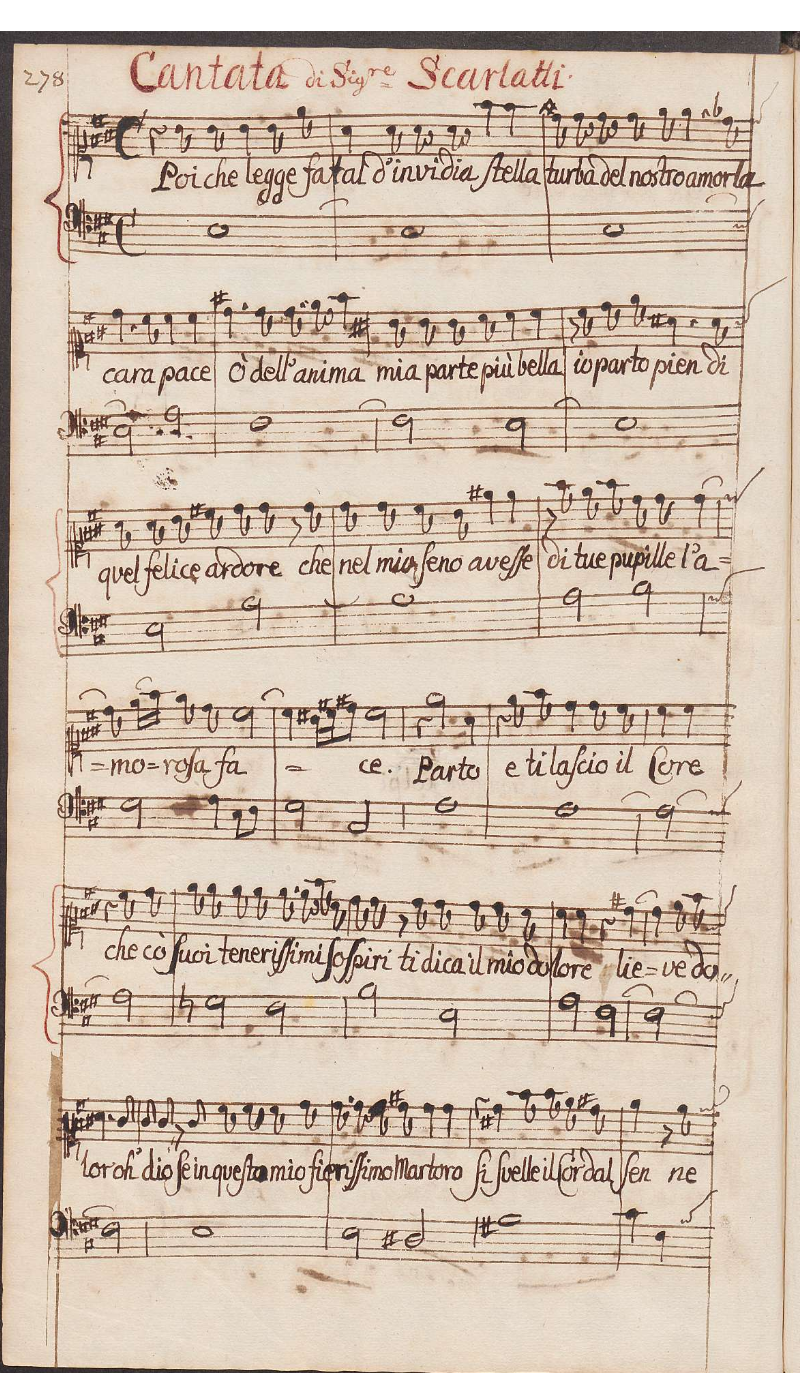 278
Cantata di Sig.re Scarlatti.
Poi che legge fatal d'invidia stella turba del nostro amor la
cara pace Ò dell'anima mia parte più bella io parto pien di
quel felice ardore che nel mio seno avesse di tue pupille l'a=
=mo=rosa fa = ce. Parto e ti lascio il Core
che cò suoi tenerissimi sospiri ti dica il mio dolore lie=ve do,,
lor oh' dio se in questo mio fierissimo Martoro si svelle il Cor dal sen ne